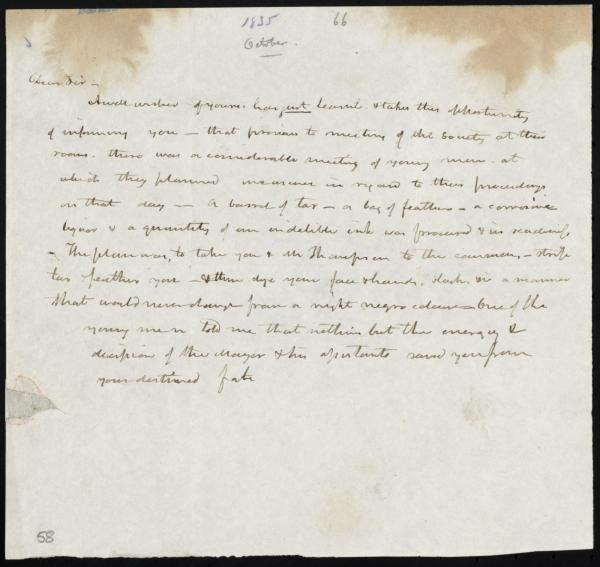 1835 66
October.
Dear Sir –
A well wisher of yours has just learnt & takes this opportunity
of informing you – that previous to meeting of the Society at their
rooms. there was a considerable meeting of young men. at
which they planned measures in regard to these proceedings
on that day – A barrel of tar – a bag of feathers – a corrosive
liquor & a quantity of an indelible ink was procured & in readiness
– The plan was, to take you & Mr Thompson to the common, – strip
tar feather you – & then dye your face & hands, black in a manner
that would never change from a night negro colour – One of the
young men told me that nothing but the energy &
decision of the Mayor & his assistants saved you from
your destined fate
58